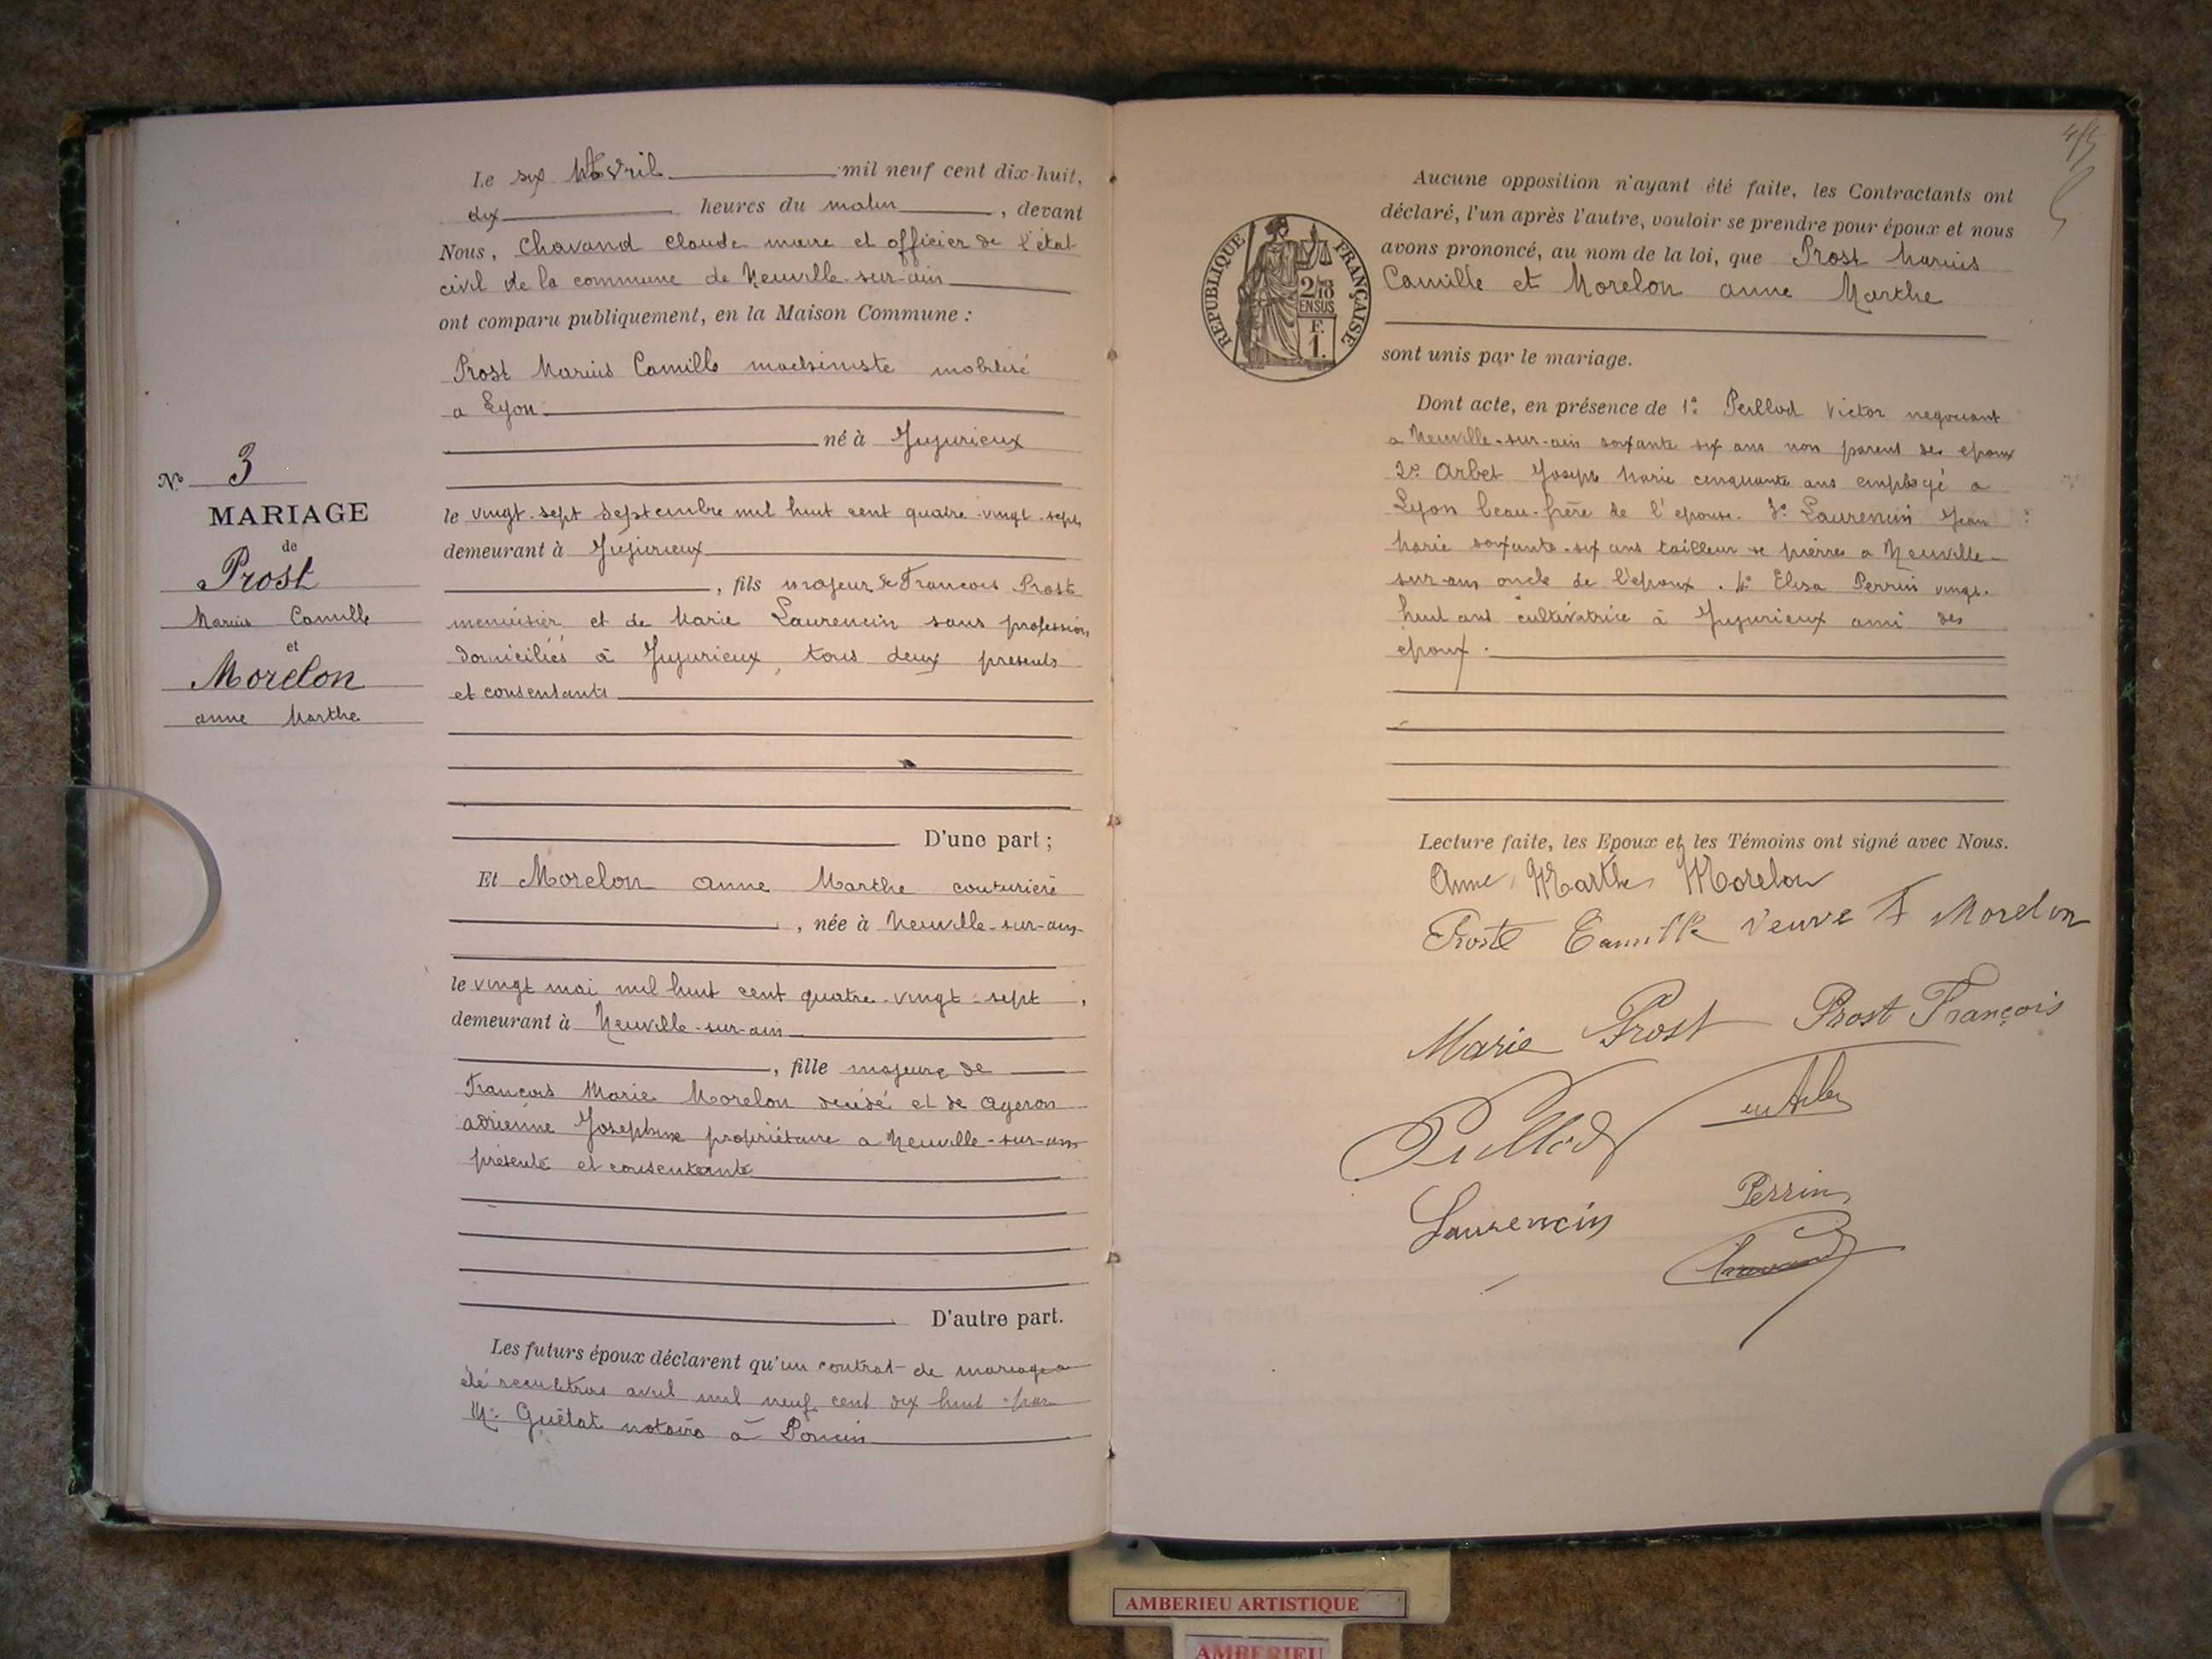 Le six Avril mil neuf cent dix-huit,
dix heures du matin, devant
Nous, Chavand Claude maire et officier de l'état
civil de la commune de Neuville-sur-ain
ont comparu publiquement, en la Maison Commune :
Prost Marius Camille machiniste mobilisé
a Lyon
né à Jujurieux
le vingt-sept septembre mil huit cent quatre-vingt-sept,
demeurant à Jujurieux
, fils majeur de Francois Prost
menuisier et de Marie Laurencin sans profession
domiciliés à Jujurieux, tous deux presents
et consentants
D'une part ;
Et Morelon anne Marthe couturière
, née à Neuville-sur-ain
le vingt mai mil huit cent quatre-vingt-sept,
demeurant à Neuville-sur-ain
, fille majeure de
François Marie Morelon décédé et de Ageron
adrienne Josephine propriétaire a Neuville-sur-ain
présente et consentante
D'autre part.
Les futurs époux déclarent qu'un contrat de mariage a
été recu le trois avril mil neuf cent dix huit par
Me Guétat notaire à Poncin
N° 3
MARIAGE
de
Prost
Marius Camille
et
Morelon
anne Marthe
Aucune opposition n'ayant été faite, les Contractants ont
déclaré, l'un après l'autre, vouloir se prendre pour époux et nous
avons prononcé, au nom de la loi, que Prost Marius
Camille et Morelon anne Marthe
sont unis par le mariage.
RÉPUBLIQUE FRANÇAISE
2/10
EN SUS
F.
1.
Dont acte, en présence de 1° Peillod Victor negociant
a Neuville-sur-ain soixante six ans non parent des epoux
2° Arbet Joseph Marie cinquante ans employé a
Lyon beau-frère de l'epouse. 3° Laurencin Jean
Marie soixante-six ans tailleur de pierres a Neuville-
sur-ain oncle de l'epoux. 4° Elisa Perrin vingt-
huit ans cultivatrice à Jujurieux ami des
epoux.
Lecture faite, les Epoux et les Témoins ont signé avec Nous.
Anne Marthe Morelon
Prost Camille Veuve F Morelon
Marie Prost Prost François
Peillod
Laurencin Perrin
Chavand
AMBERIEU ARTISTIQUE
AMBERIEU